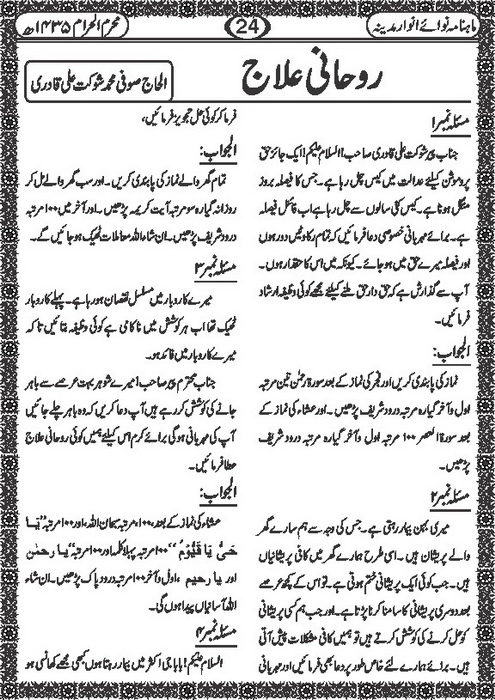 ماہنامہ نوائے انوار مدینہ
24
محرم الحرام ۱۴۳۵ھ
روحانی علاج
الحاج صوفی محمد شوکت علی قادری
مسئلہ نمبر ۱
جناب پیر شوکت علی قادری صاحب! السلام علیکم! ایک جائز حق
پروموشن کیلئے عدالت میں کیس چل رہا ہے۔ جس کا فیصلہ بروز
منگل ہونا ہے۔ کیس کئی سالوں سے چل رہا ہے اب فائنل فیصلہ
ہے۔ برائے مہربانی خصوصی دعا فرمائیں کہ تمام رکاوٹیں دور ہوں
اور فیصلہ میرے حق میں ہو جائے۔ کیونکہ میں اس کا حقدار ہوں۔
آپ سے گذارش ہے کہ حق دار حق ملنے کیلئے مجھے کوئی وظیفہ ارشاد
فرمائیں۔
الجواب:
نماز کی پابندی کریں اور فجر کی نماز کے بعد سورۃ رحمٰن تین مرتبہ
اول و آخر گیارہ مرتبہ درود شریف پڑھیں۔ اور عشاء کی نماز کے
بعد سورۃ العصر ۱۰۰ مرتبہ اول و آخر گیارہ مرتبہ درود شریف
پڑھیں۔
مسئلہ نمبر ۲
میری بہن بیمار رہتی ہے۔ جس کی وجہ سے ہم سارے گھر
والے پریشان ہیں۔ اسی طرح ہمارے گھر میں کافی پریشانیاں
ہیں۔ جب کوئی ایک پریشانی ختم ہوتی ہے۔ تو اس کے کچھ عرصے
بعد دوسری پریشانی کا سامنا کرنا پڑتا ہے۔ اور جب ہم کسی پریشانی
کو حل کرنے کی کوشش کرتے ہیں تو ہمیں کافی مشکلات پیش آتی
ہیں۔ برائے ہمارے لئے خاص طور پر دعا بھی فرمائیں اور مہربانی
فرما کر کوئی حل تجویز فرمائیں۔
الجواب:
تمام گھر والے نماز کی پابندی کریں۔ اور سب گھر والے مل کر
روزانہ گیارہ سو مرتبہ آیت کریمہ پڑھیں۔ اور آخر میں ۱۰۰ مرتبہ
درود شریف پڑھیں۔ ان شاء اللہ معاملات ٹھیک ہو جائیں گے۔
مسئلہ نمبر ۳
میرے کاروبار میں مسلسل نقصان ہو رہا ہے۔ پہلے کاروبار
ٹھیک تھا اب ہر کوشش میں ناکامی ہے کوئی وظیفہ بتائیں تاکہ
میرے کاروبار میں فائدہ ہو۔
جناب محترم پیر صاحب! میرے شوہر بہت عرصے سے باہر
جانے کی کوشش کر رہے ہیں آپ دعا کریں کہ وہ باہر چلے جائیں
آپ کی مہربانی ہوگی برائے کرم اس کیلئے ہمیں کوئی روحانی علاج
عطا فرمائیں۔
الجواب:
عشاء کی نماز کے بعد، ۱۰۰ مرتبہ سبحان اللہ، اور ۱۰۰ مرتبہ "یَا
حَیُّ یَا قَیُّوْمُ" ۱۰۰ مرتبہ پہلا کلمہ اور ۱۰۰ مرتبہ "یا رحمٰن
اور یا رحیم، اول و آخر ۱۰۰ مرتبہ درود پاک پڑھیں۔ ان شاء
اللہ آسانیاں پیدا ہوں گی۔
مسئلہ نمبر ۴
السلام علیکم! بابا جی اکثر میں بیمار رہتا ہوں کبھی مجھے کھانسی ہو